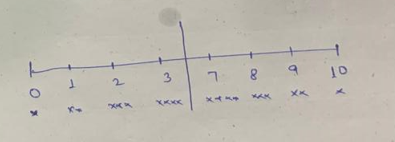 0 1 2 3 7 8 9 10
x xx xxx xxxx xxxx xxx xx x